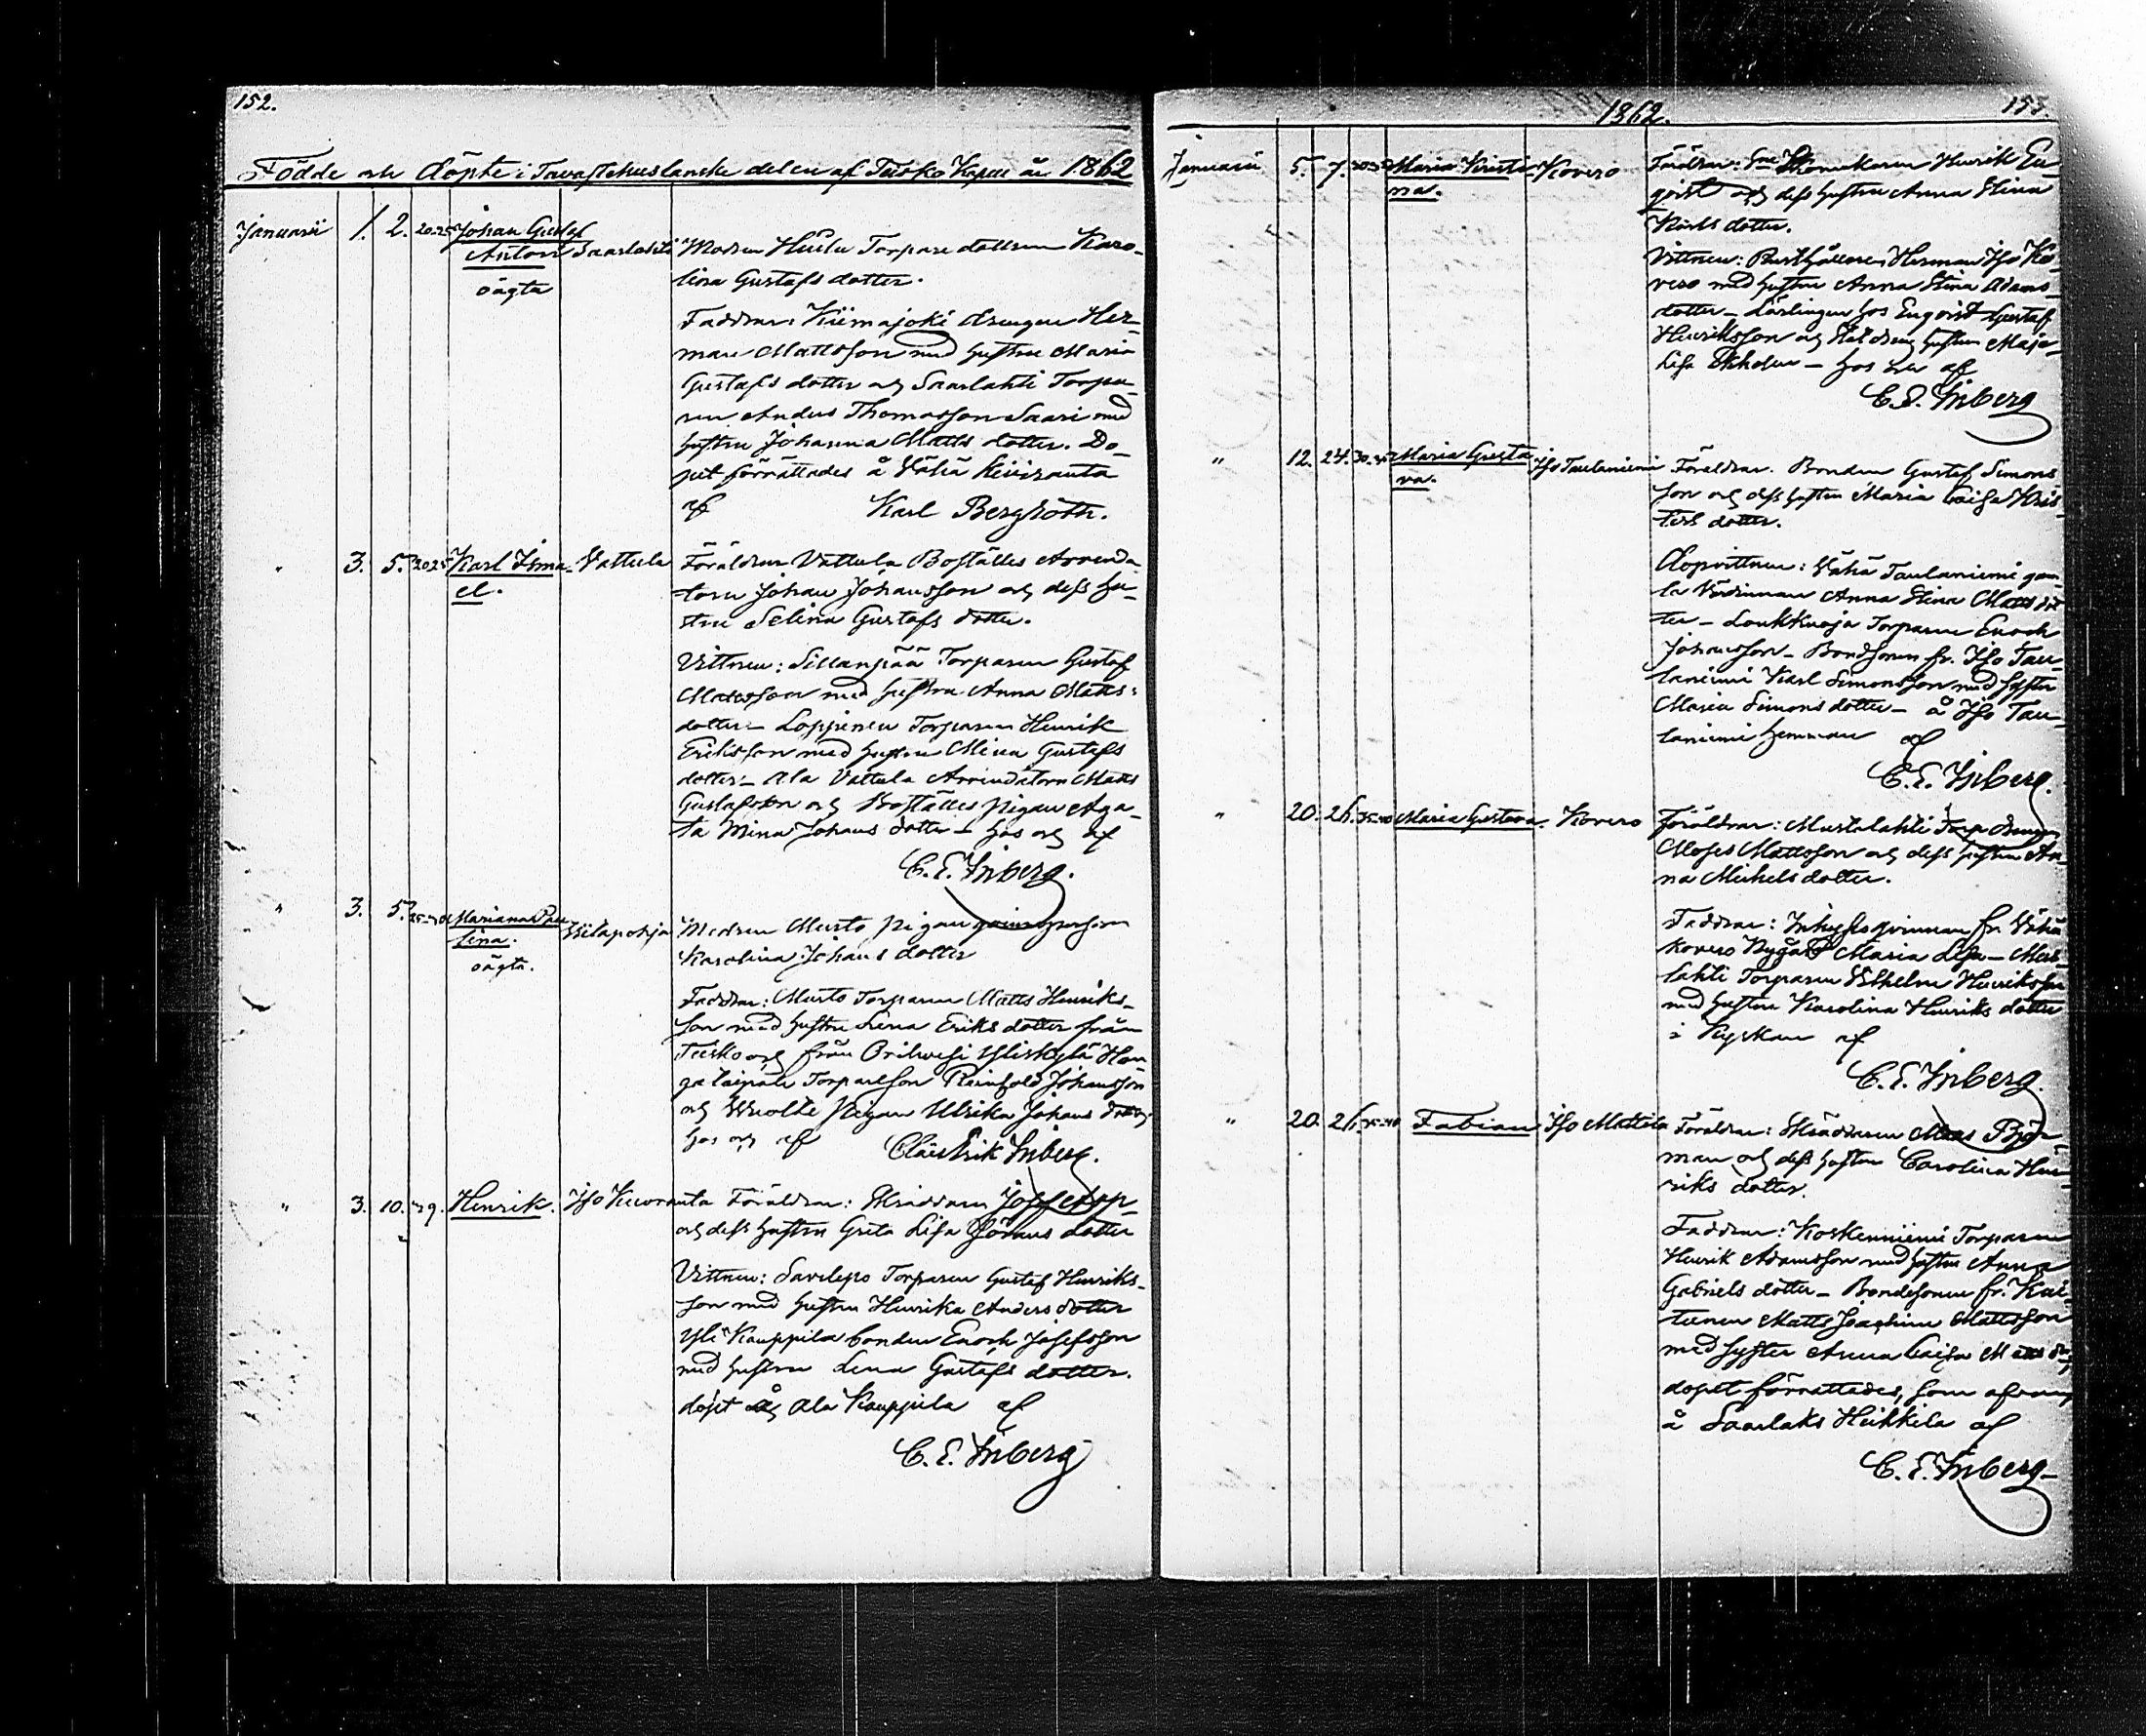 152.
Födde och Döpte i Tavastehuslänske delen af Teisko Kapell år 1862
Januarii 1. 2. 20.25 Johan Gustaf
Anton Saarlahti Modren Torpare dottren Karo-
oägta lina Gustafs dotter.
Faddrar: Kiimajoki drengen Her-
man Mattsson med hustru Maria
Gustafs dotter och Saarlahti Torpa-
ren Anders Thomasson Saari med
hustru Johanna Matts dotter. Do-
pet förrättades å Vähä Keiviranta
af Karl Bergroth.
" 3. 5. 20.25 Karl Isma- Vattula Föräldrar Vattula Boställes Arrenda-
el. toren Johan Johansson och dess hu-
stru Selina Gustafs dotter.
Vittnen: Sillanpää Torparen Gustaf
Mattsson med hustru Anna Matts-
dotter – Loppinen Torparen Henrik
Eriksson med hustru Mina Gustafs
dotter – Ala Vattula Arrendatorn Matts
Gustafsson och Boställes pigan Aga-
ta Mina Johans dotter – hos och af
C. E. Inberg.
" 3. 5. 25-30 Mariana Pau- Wilapohja Modren Musto pigan
lina. Karolina Johans dotter
oägta.
Faddrar: Musto Torparen Matts Henriks-
son med hustru Lena Eriks dotter från
Teisko och från Orihvesi Yliskylä Han-
galaipale Torparson Reinhold Johansson
och pigan Ulrika Johans dotter
hos och af Claës Erik Inberg.
" 3. 10. 39. Henrik. Iso Kuoranta Föräldrar: Skräddaren Josef
och dess hustru Greta Lisa Jörans dotter
Vittnen: Savilepo Torparen Gustaf Henriks-
son med hustru Henrika Anders dotter
Yli Kauppila bonden Enoch Josefsson
med hustru Lena Gustafs dotter.
döpt å Ala Kauppila af
C. E. Inberg
1862. 153.
Januarii 5. 7. 30.35 Maria Kristi- Kovero Föräldrar: Skomakaren Henrik En-
na. qvist och dess hustru Anna Stina
Karls dotter.
Vittnen: Rusthållaren Herman Iso Ko-
vero med hustru Anna Stina Adams-
dotter – Lärlingen hos Enqvist Gustaf
Henriksson och hustru Maja
Lisa Ekholm – hos af
C. E. Inberg
" 12. 24. 30.35 Maria Gusta- Iso Taulaniemi Föräldrar. Bonden Gustaf Simons-
va. son och dess hustru Maria Caisa Kris-
ters dotter.
Dopvittnen: Vähä Taulaniemi gam-
la Värdinnan Anna Stina Matts dot-
ter – Loukkuoja Torparen Enoch
Johansson – Bondsonen fr. Iso Tau-
laniemi Karl Simonsson med syster
Maria Simons dotter – å Iso Tau-
laniemi hemman af
C. E. Inberg.
" 20. 26. 35-40 Maria Gustava. Kovero Föräldrar: Mustalahti
Moses Mattsson och dess hustru An-
na Michels dotter.
Faddrar: Inhyses qvinnan fr. Vähä
Kovero Nygård Maria Lisa – Mus-
lahti Torparen Vilhelm Henriksson
med hustru Karolina Henriks dotter
i Kyrkan af
C. E. Inberg.
" 20. 26. 35-40 Fabian Iso Mattila Föräldrar: Skräddaren Matts Björ-
man och dess hustru Carolina Hen-
riks dotter.
Faddrar: Koskenniemi Torparen
Henrik Adamsson med hustru Anna
Gabriels dotter – Bondesonen fr. Kai-
tunen Matts Joachim Mattsson
med syster Anna Caisa Matts
dopet förrättades, som
å Saarlaks Heikkilä af
C. E. Inberg